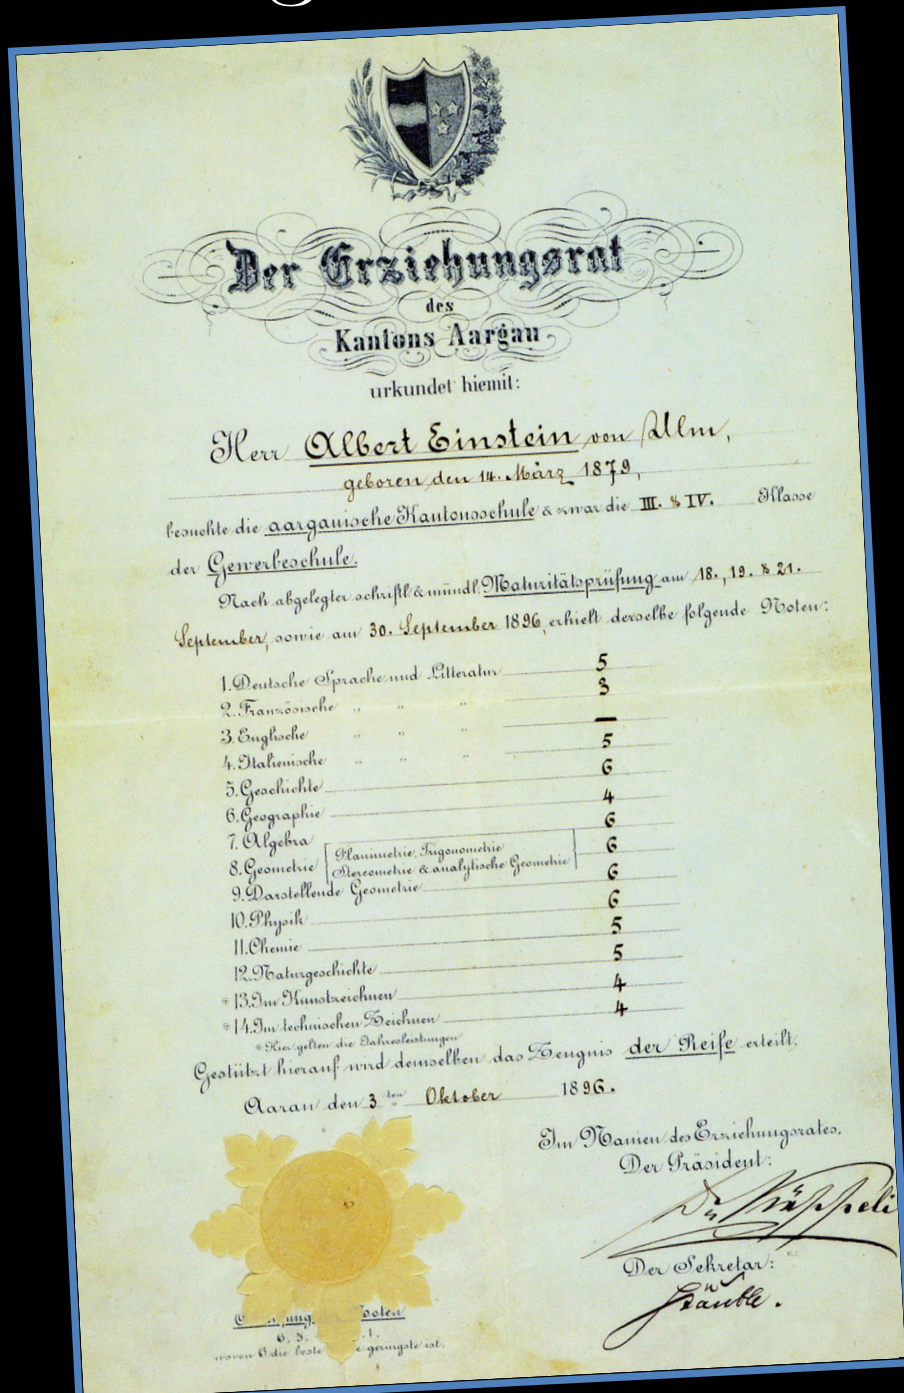 Der Erziehungsrat
des
Kantons Aargau
urkundet hiemit:
Herr Albert Einstein von Ulm,
geboren den 14. März 1879,
besuchte die aargauische Kantonsschule & zwar die III. & IV. Klasse
der Gewerbeschule.
Nach abgelegter schriftl. & mündl. Maturitätsprüfung am 18., 19. & 21.
September, sowie am 30. September 1896, erhielt derselbe folgende Noten:
1. Deutsche Sprache und Litteratur 5
2. Französische " " " 3
3. Englische " " " —
4. Italienische " " " 5
5. Geschichte 6
6. Geographie 4
7. Algebra 6
8. Geometrie [Planimetrie, Trigonometrie 6
Stereometrie & analytische Geometrie]
9. Darstellende Geometrie 6
10. Physik 6
11. Chemie 5
12. Naturgeschichte 5
* 13. Im Kunstzeichnen 4
* 14. Im technischen Zeichnen 4
* Hier gelten die Jahresleistungen
Gestützt hierauf wird demselben das Zeugnis der Reife erteilt.
Aarau den 3ten Oktober 1896.
Im Namen des Erziehungsrates.
Der Präsident:
Käppeli
Der Sekretär:
Stäuble.
Noten
6, 5. 1,
wovon 6 die beste geringste ist.